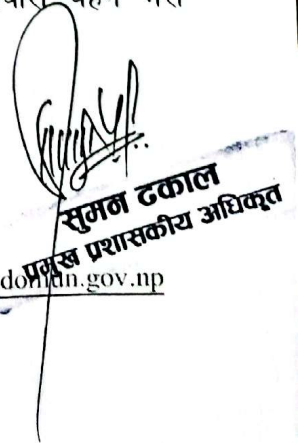 सुमन ढकाल
प्रमुख प्रशासकीय अधिकृत
domun.gov.np